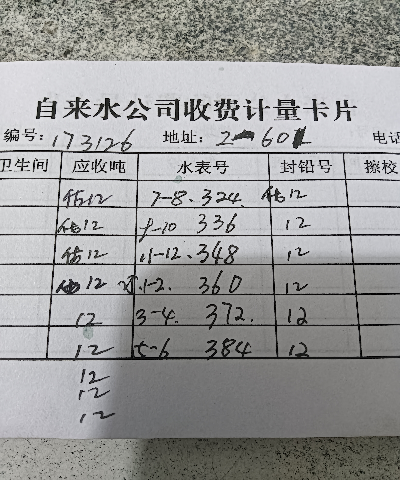 自来水公司收费计量卡片
编号: 173126 地址: 2-601 电话
卫生间 应收吨 水表号 封铅号 擦校
估12 7-8. 324 估12
估12 9-10 336 12
估12 11-12. 348 12
估12 1-2. 360 12
12 3-4. 372. 12
12 5-6 384 12
12
12
12